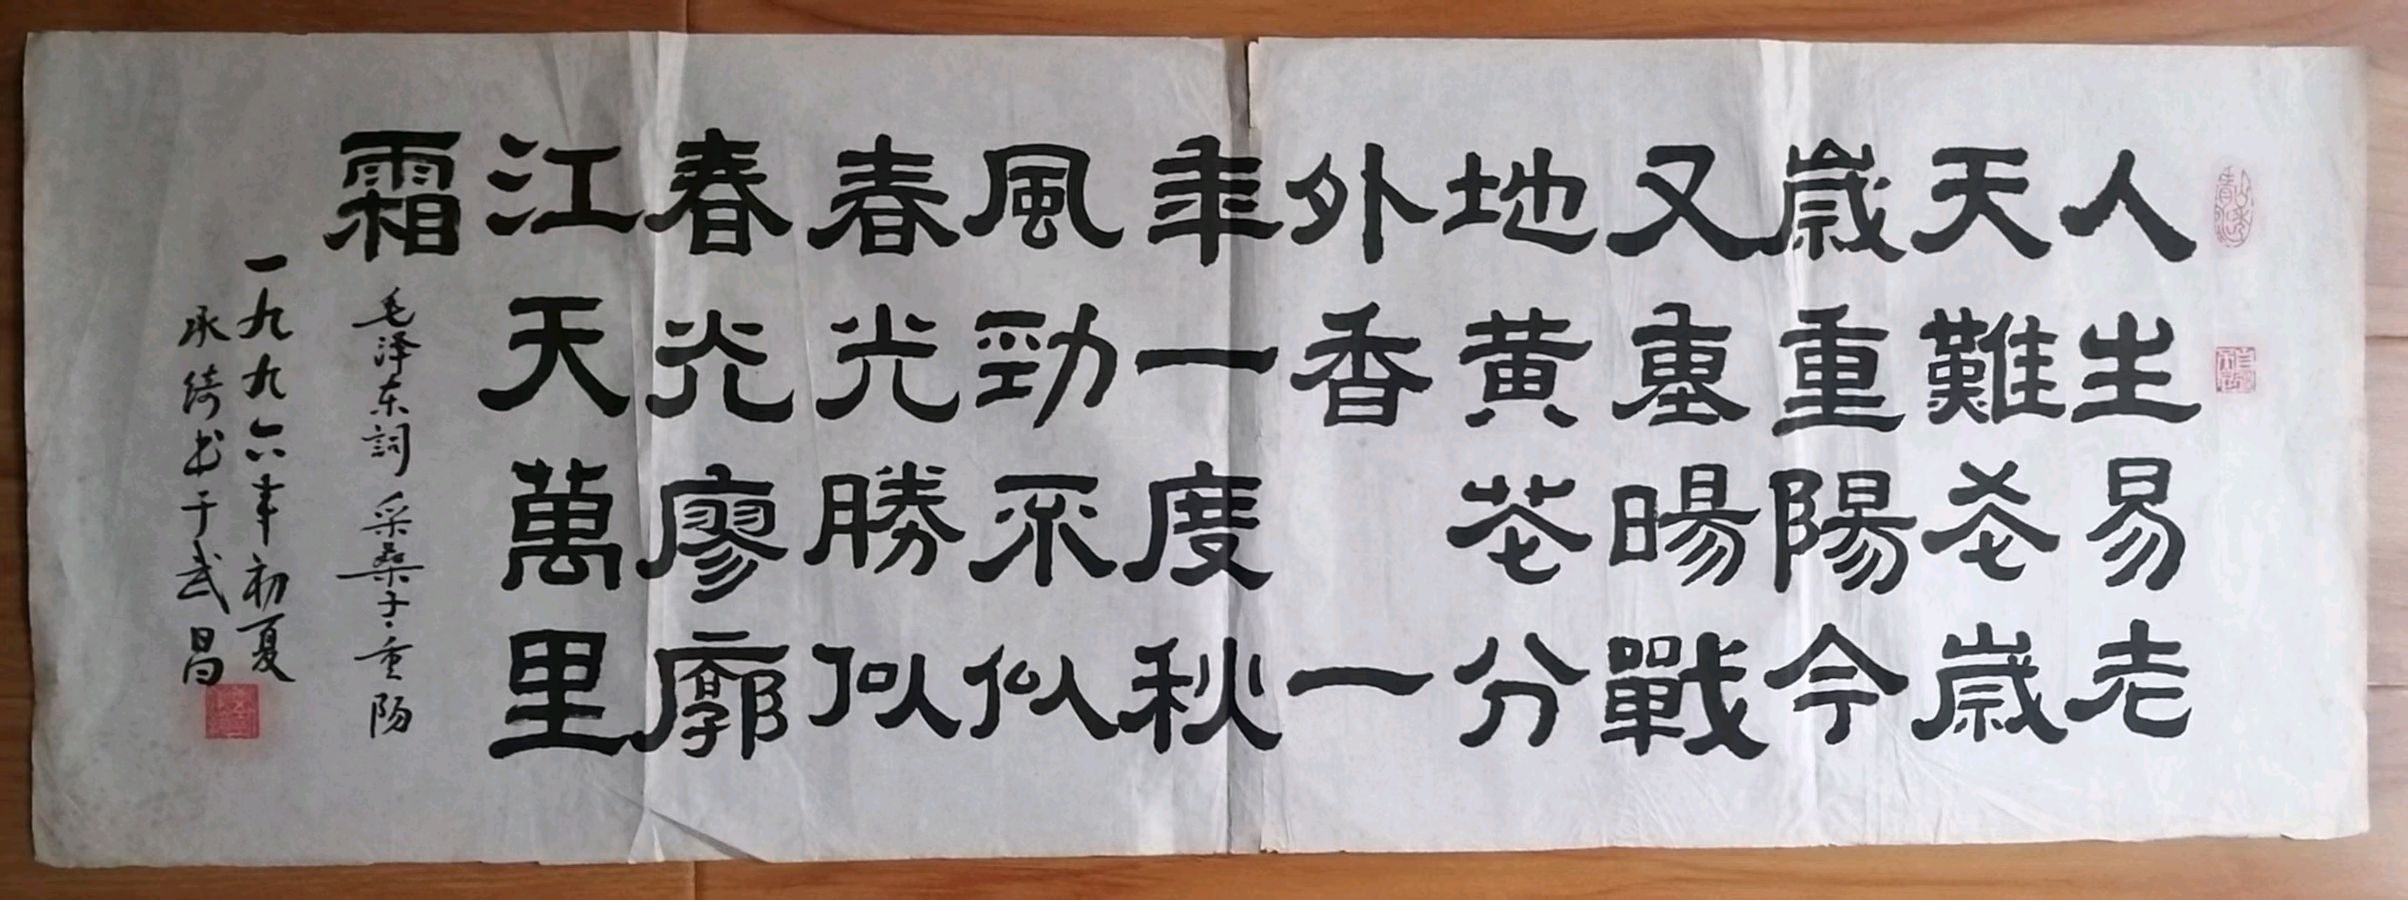 人生易老
天難老歲
歲重陽今
又重暘戰
地黄花分
外香一
年一度秋
風勁不似
春光勝似
春光廖廓
江天萬里
霜
毛泽东詞 采桑子·重阳
一九九六年初夏
承绮书于武昌